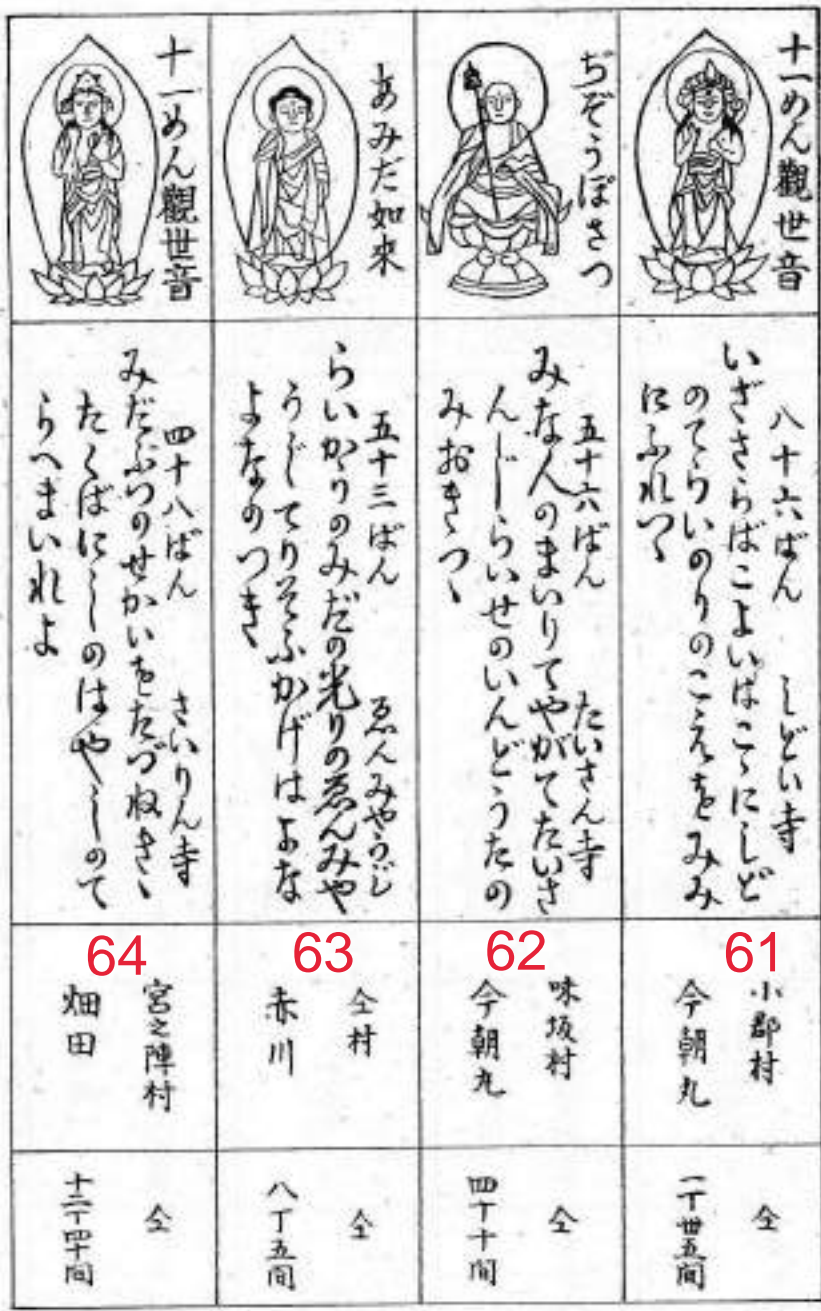 十一めん觀世音
八十六ばん　しどい寺
いざさらばこよいはこゝにしど
のてらいのりのこえをみみ
にふれつゝ
61
小郡村
今朝丸
仝
一丁卅五間
ぢぞうぼさつ
五十六ばん　たいさん寺
みな人のまいりてやがてたいさ
んじらいせのいんどうたの
みおきつゝ
62
味坂村
今朝丸
仝
四丁十間
あみだ如來
五十三ばん　ゑんみやうじ
らいかうのみだの光りのゑんみや
うじてりそふかげはよな
よなのつき
63
仝村
赤川
仝
八丁五間
十一めん觀世音
四十八ばん　さいりん寺
みだぶつのせかいをたづねきゝ
たくばにしのはやしのて
らへまいれよ
64
宮之陣村
畑田
仝
十二丁四十間